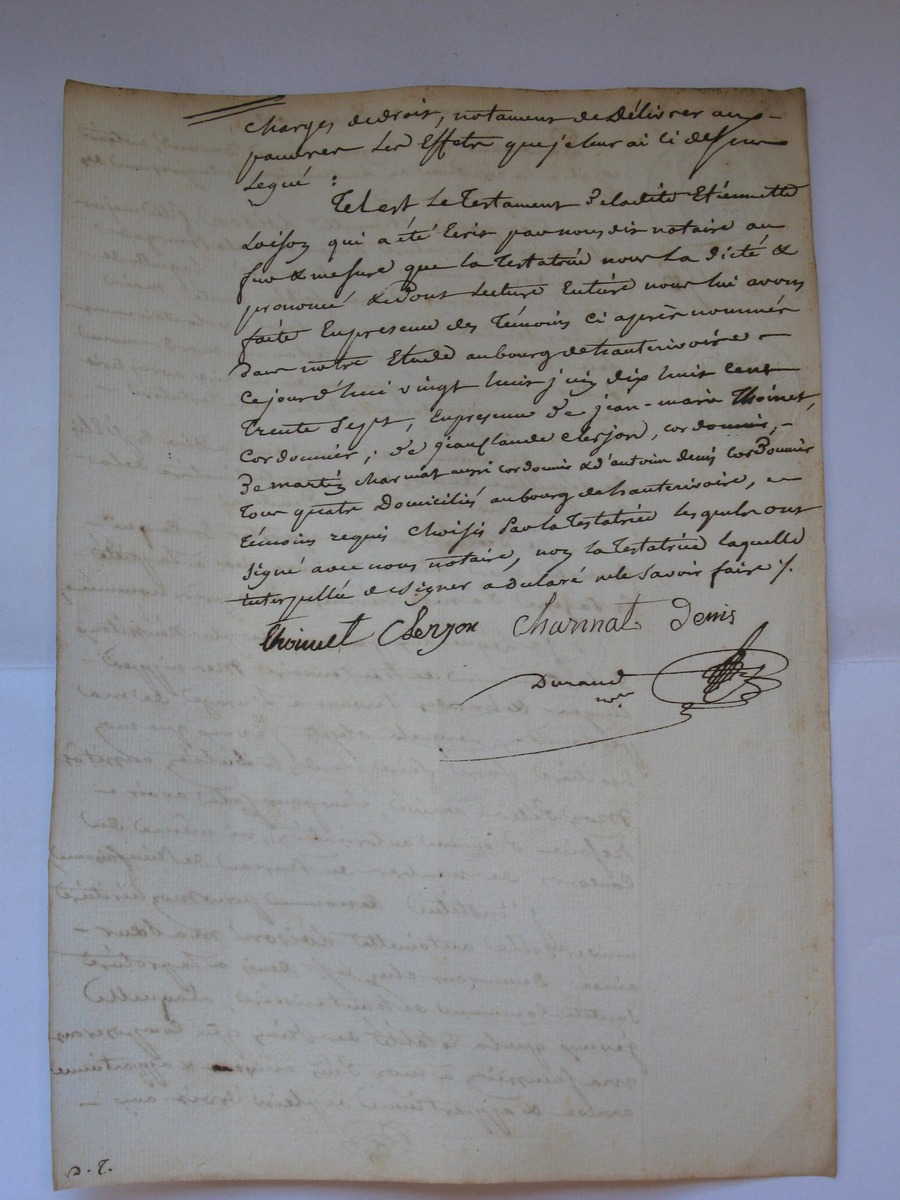 charges de droit, notament de Délivrer aux
pauvres Les Effets que je leur ai ci dessus
Legué :
Tel est Le Testament de ladite Etiennette
Loison qui a été Ecrit par nous dit notaire au
fur & mesure que la Testatrice nous La Dicté &
prononcé & Dont Lecture Entiere nous lui avons
faite En presence des Témoins ci après nommés
Dans notre Etude au bourg de hauterivoire –
Ce jourd'hui vingt huit juin dix huit cent
Trente Sept, En presence de jean-marie Thoinet,
Cordonnier, de jean Claude Cherjon, cordonnier, –
De martin Charmat aussi cordonnier & d'antoine denis Cordonnier
Tous quatre Domiciliés au bourg de hauterivoire,
témoins requis Choisis Par la Testatrice lesquels ont
signé avec nous notaire, non la Testatrice laquelle
interpellée de signer a declaré ne le Savoir faire /.
thoinet Cherjon Charmat Denis
Durand
nre
D. T.